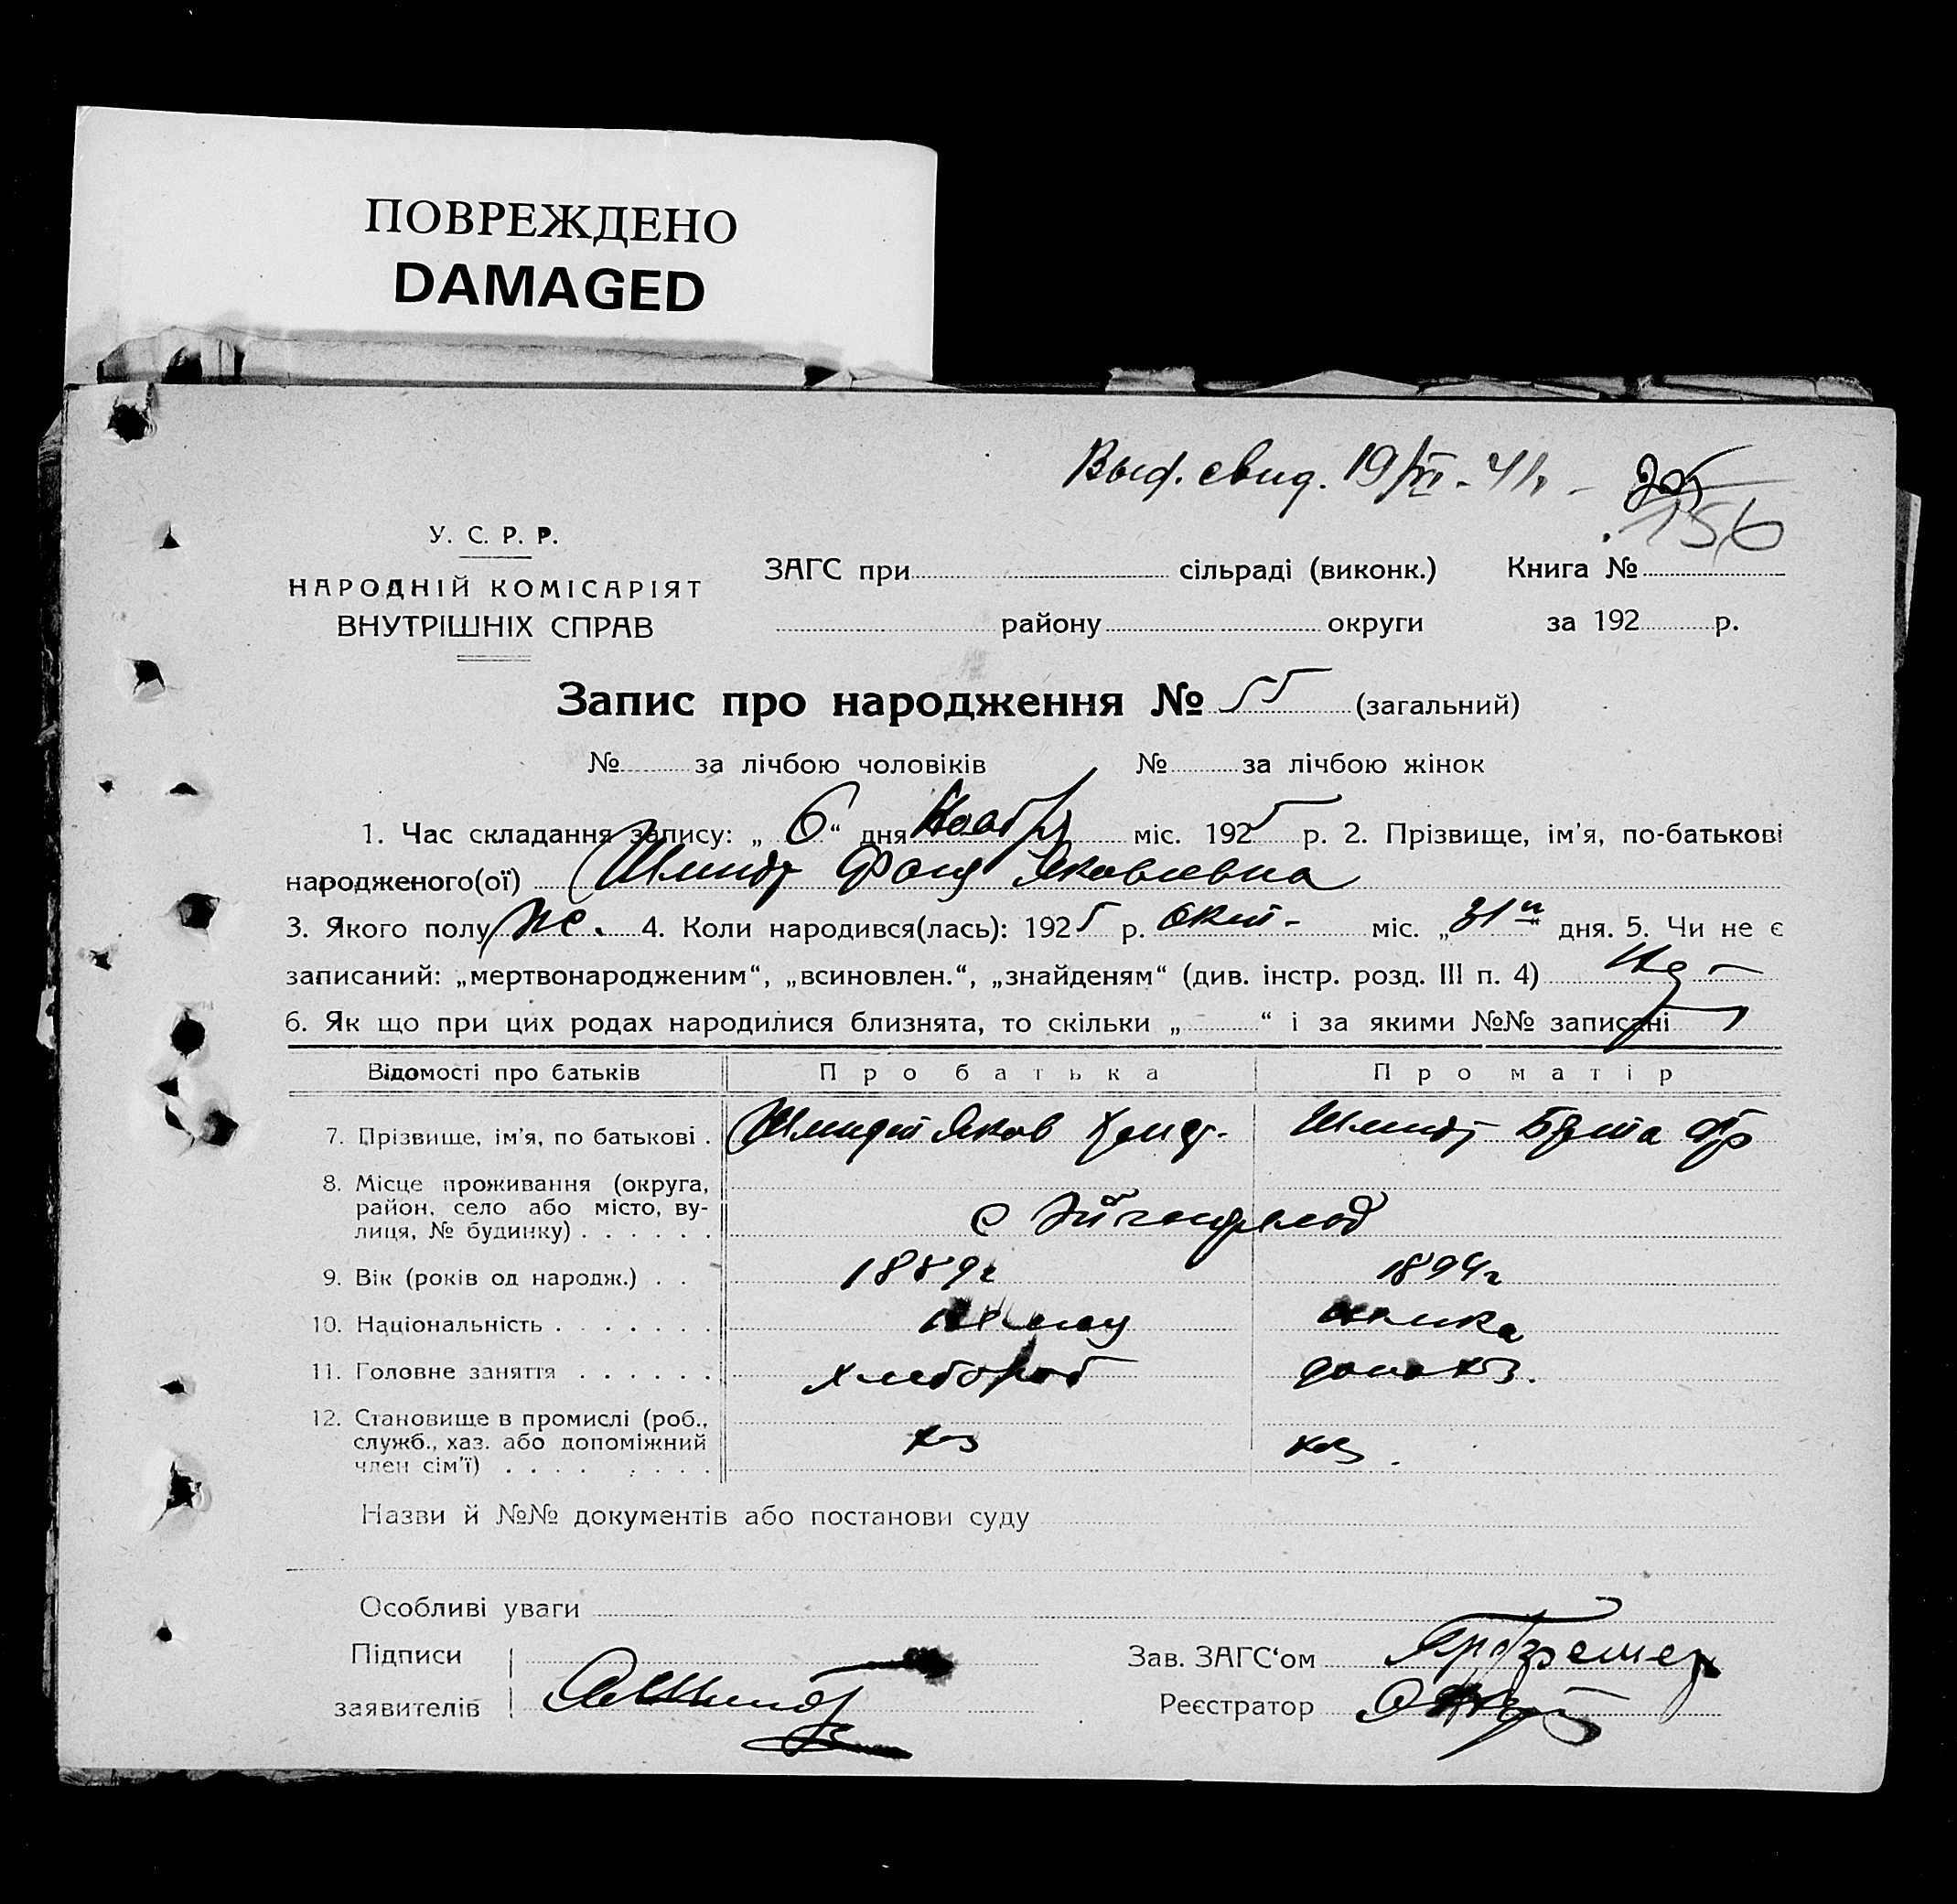 ПОВРЕЖДЕНО
DAMAGED
Выд. свид. 19/VI - 41г. -
156
У. С. Р. Р.
НАРОДНІЙ КОМІСАРІЯТ
ВНУТРІШНІХ СПРАВ
ЗАГС при сільраді (виконк.) Книга №
району округи за 192 р.
Запис про народження № 55 (загальний)
№ за лічбою чоловіків № за лічбою жінок
1. Час складання запису: „ 6 “ дня Ноабря міс. 1925 р. 2. Прізвище, ім’я, по-батькові
народженого(ої) Шмидт Яковлевна
3. Якого полу же. 4. Коли народився(лась): 1925 р. Окт- міс. „ 31 “ дня. 5. Чи не є
записаний: „мертвонародженим“, „всиновлен.“, „знайденям“ (див. інстр. розд. III п. 4)
6. Як що при цих родах народилися близнята, то скільки „ “ і за якими №№ записані
Відомості про батьків Про батька Про матір
7. Прізвище, ім’я, по батькові . Шмидт Яков Шмидт
8. Місце проживання (округа,
район, село або місто, ву-
лиця, № будинку) . . . . . . с Эйгенфельд
9. Вік (років од народж.) . . 1889г 1894г
10. Національність . . . . . . . немец немка
11. Головне заняття . . . . . . хлебороб домохоз.
12. Становище в промислі (роб.,
служб., хаз. або допоміжний
член сім’ї) . . . . . . . . хоз хоз.
Назви й №№ документів або постанови суду
Особливі уваги
Підписи
заявителів
Зав. ЗАГС‘ом
Реєстратор